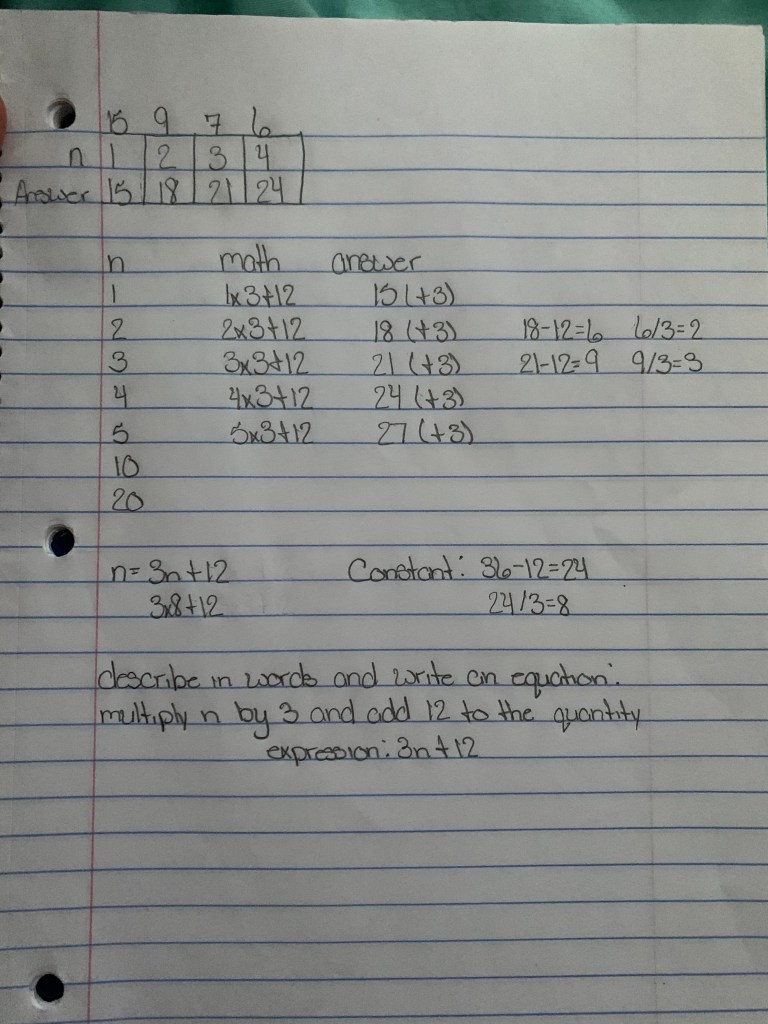 15 9 7 6
n 1 2 3 4
Answer 15 18 21 24
n math answer
1 1x3+12 15 (+3)
2 2x3+12 18 (+3) 18-12=6 6/3=2
3 3x3+12 21 (+3) 21-12=9 9/3=3
4 4x3+12 24 (+3)
5 5x3+12 27 (+3)
10
20
n= 3n+12 Constant: 36-12=24
3x8+12 24/3=8
describe in words and write an equation:
multiply n by 3 and add 12 to the quantity
expression: 3n+12